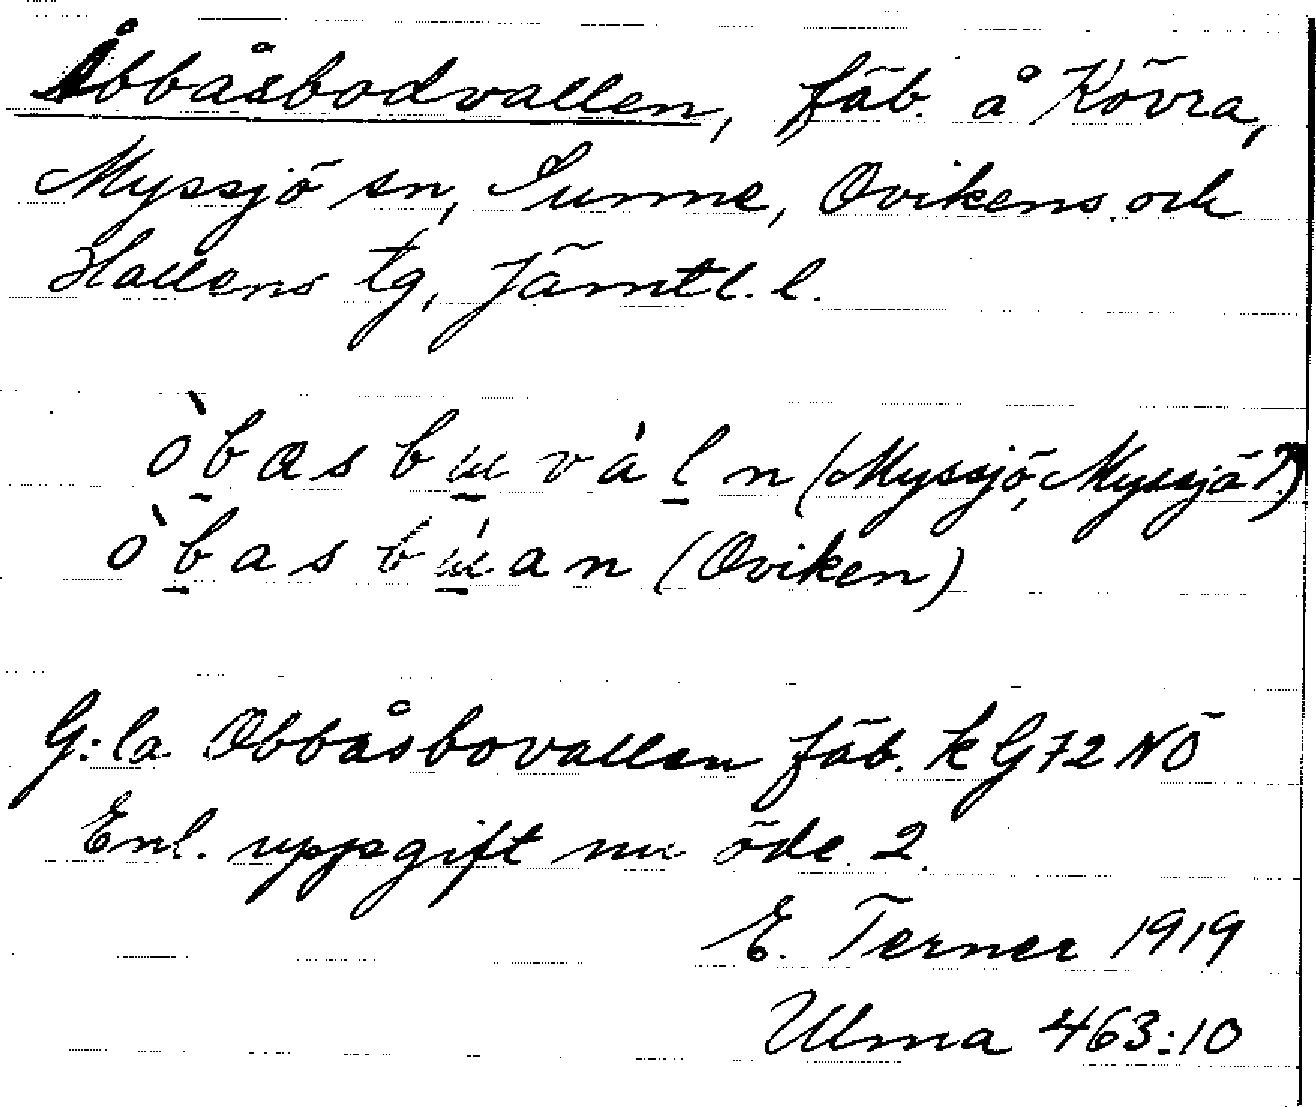 Åbbåsbodvallen, fäb. å Kövra,
Myssjö sn, Sunne, Ovikens och
Hallens tg, Jämtl. l.
òb̲asbɯ̲vál̲n (Myssjö, Myssjö?)
òb̲asbɯ̲́an (Oviken)
G:la Obbåsbovallen fäb. k G72 NÖ
Enl. uppgift nu öde. 2.
E. Terner 1919
Ulma 463:10